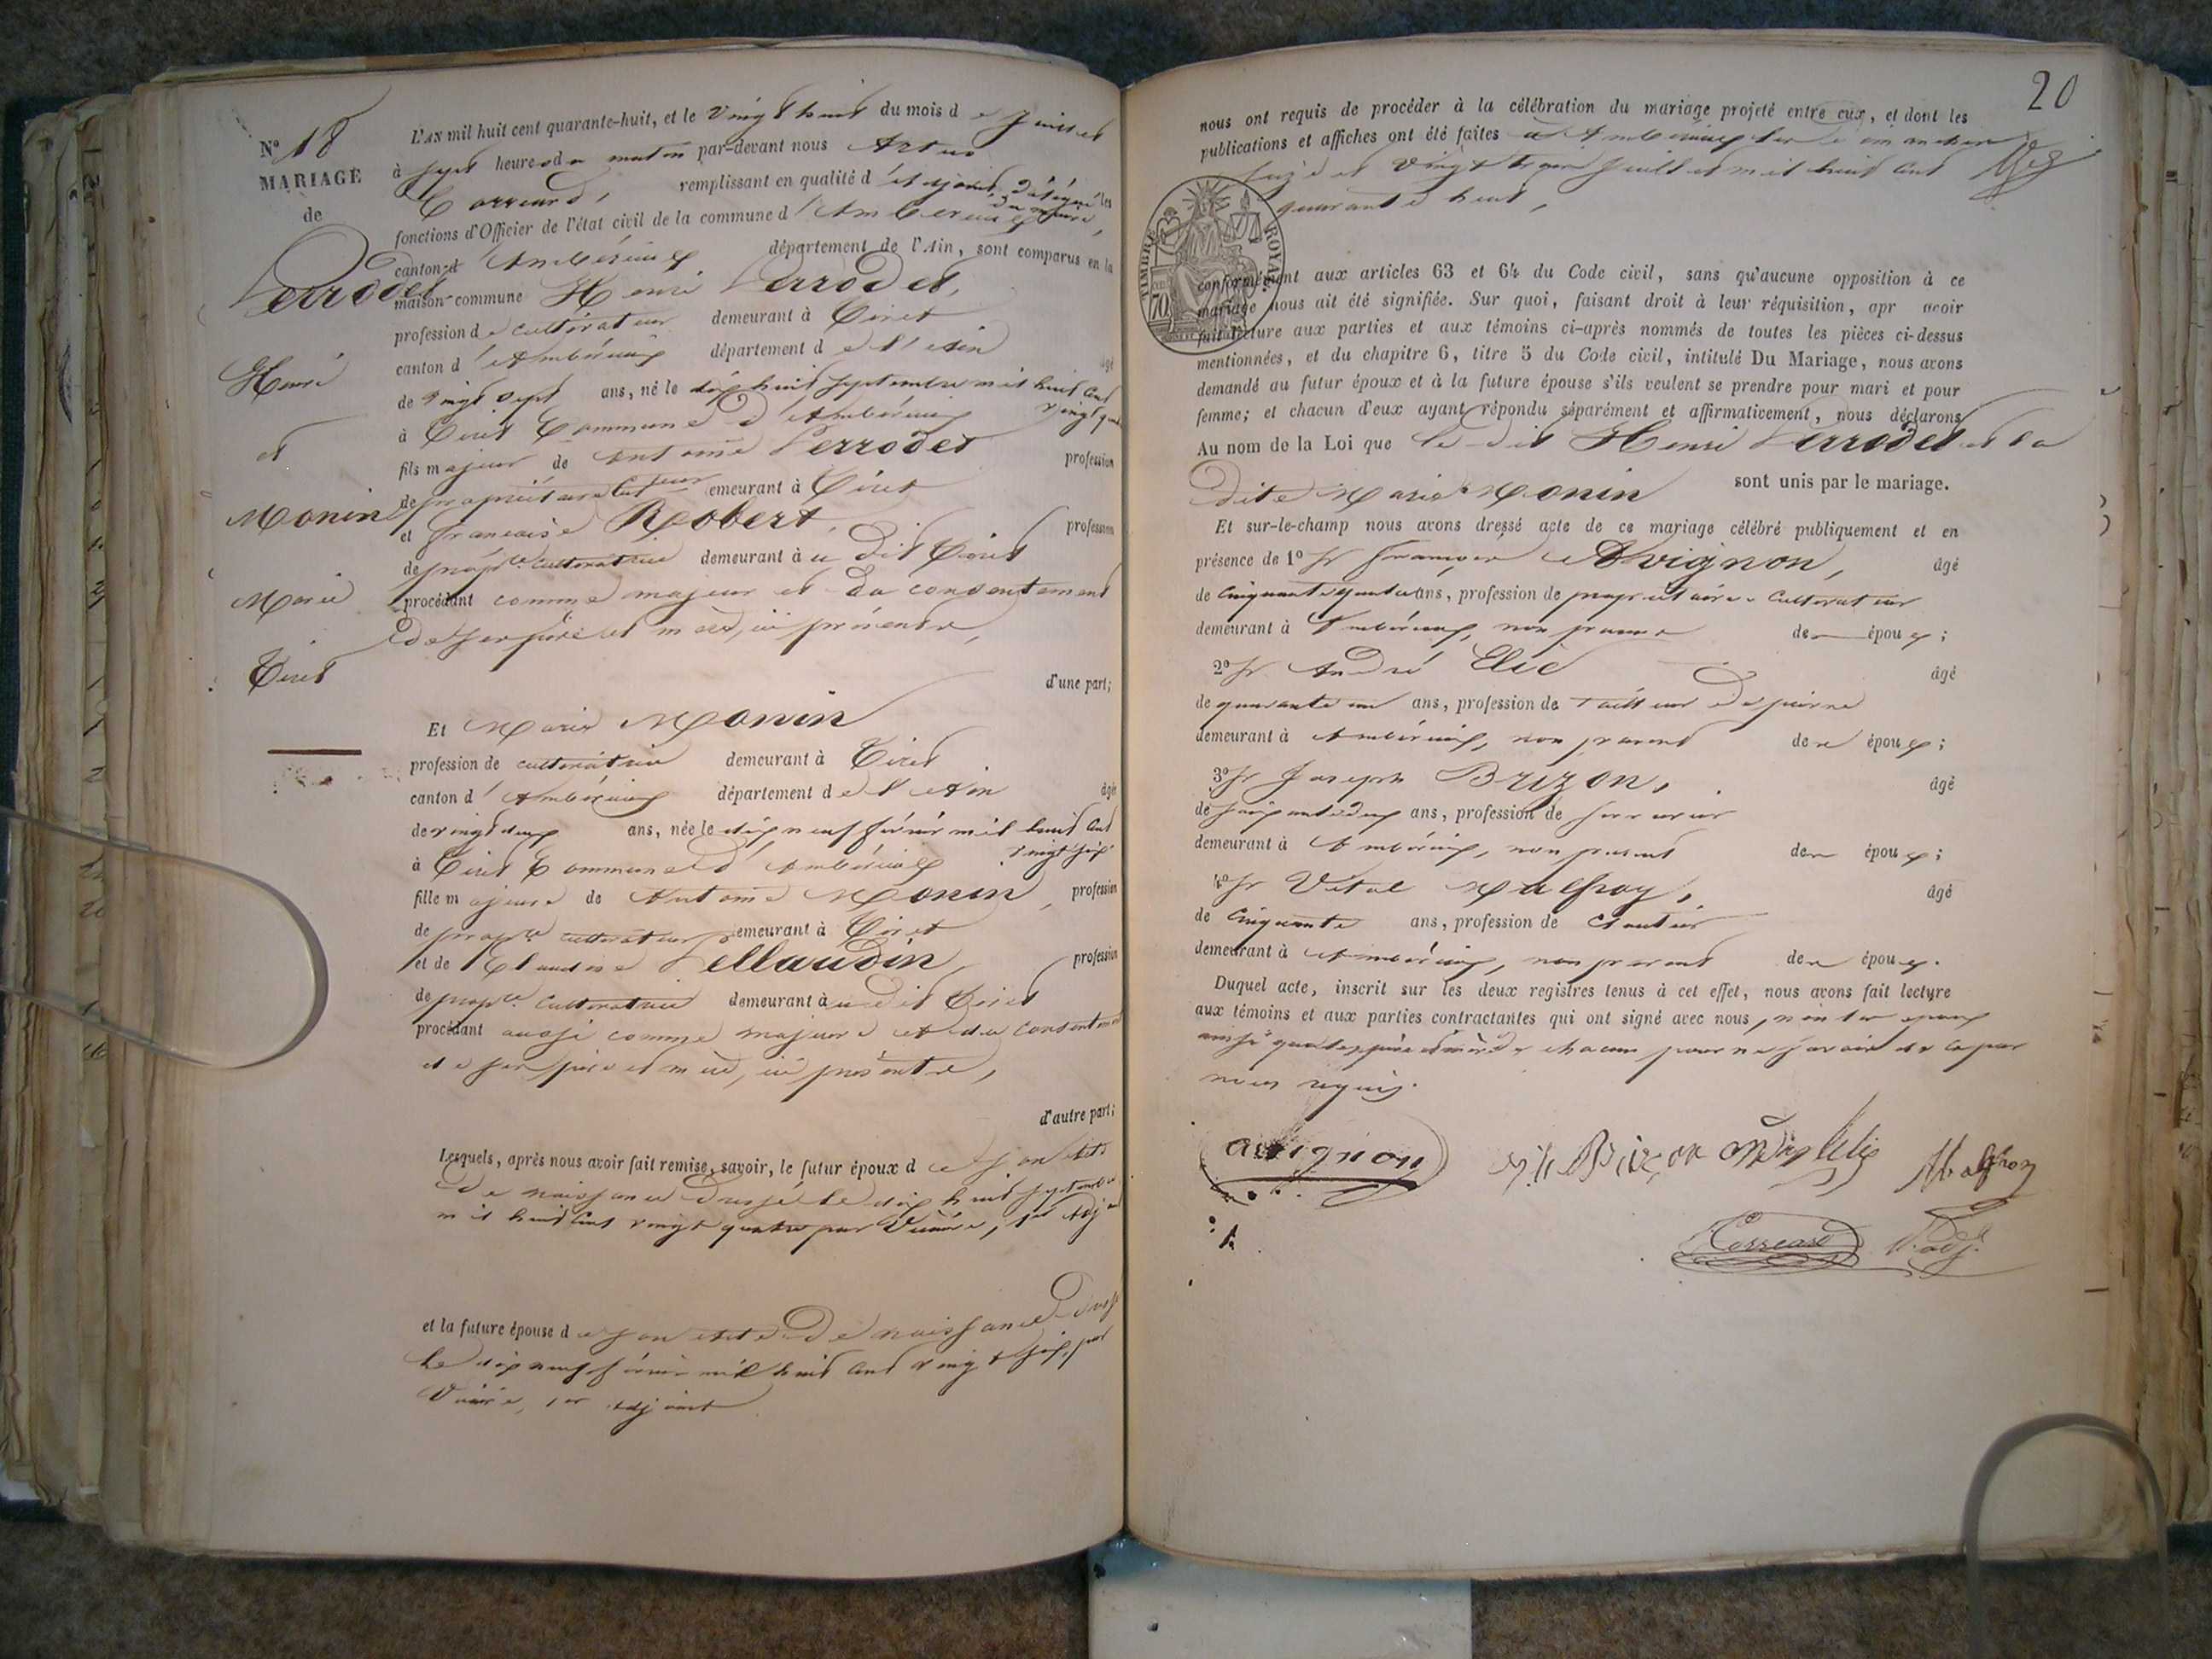 N° 18
MARIAGE
de
Perrodet
Henri
et
Monin
Marie
Tiret
L'AN mil huit cent quarante-huit, et le vingt huit du mois de Juillet
à sept heures du matin par-devant nous Artus
Corréard, remplissant en qualité d'adjoint, délégué du maire, les
fonctions d'Officier de l'état civil de la commune d'Ambérieux,
canton d'Ambérieux département de l'Ain, sont comparus en la
maison commune Henri Perrodet,
profession de cultivateur demeurant à Tiret
canton d'Ambérieux département de l'Ain âgé
de vingt sept ans, né le dix huit septembre mil huit cent
à Tiret Commune d'Ambérieux vingt
fils majeur de Antoine Perrodet profession
de propriétaire cult demeurant à Tiret
et francoise Robert, profession
de prop.re cultivatrice demeurant à u dit Tiret
procédant comme majeur et du consentement
de ses père et mère, ici présents,
d'une part;
Et Marie Monin
profession de cultivatrice demeurant à Tiret
canton d'Ambérieux département de l'Ain âgée
de vingt deux ans, née le dix neuf février mil huit cent
à Tiret Commune d'Ambérieux vingt six
fille majeure de Antoine Monin, profession
de prop.re cultivateur demeurant à Tiret
et de Claudine Pellaudin, profession
de prop.re cultivatrice demeurant à u dit Tiret
procédant aussi comme majeure et du consentement
de ses père et mère, ici présents,
d'autre part;
Lesquels, après nous avoir fait remise, savoir, le futur époux de son acte
de naissance dressé le dix huit septembre
mil huit cent vingt quatre par 1er Adj
et la future épouse de son acte de naissance dressé
le dix neuf février mil huit cent vingt six, par
1er adjoint
20
nous ont requis de procéder à la célébration du mariage projeté entre eux, et dont les
publications et affiches ont été faites à Ambérieux les dimanches
seize et vingt trois Juillet mil huit cent
quarante huit,
TIMBRE ROYAL
70
conformément aux articles 63 et 64 du Code civil, sans qu'aucune opposition à ce
mariage nous ait été signifiée. Sur quoi, faisant droit à leur réquisition, apr avoir
fait lecture aux parties et aux témoins ci-après nommés de toutes les pièces ci-dessus
mentionnées, et du chapitre 6, titre 5 du Code civil, intitulé Du Mariage, nous avons
demandé au futur époux et à la future épouse s'ils veulent se prendre pour mari et pour
femme; et chacun d'eux ayant répondu séparément et affirmativement, nous déclarons
Au nom de la Loi que le dit Henri Perrodet et la
dite Marie Monin sont unis par le mariage.
Et sur-le-champ nous avons dressé acte de ce mariage célébré publiquement et en
présence de 1° Sr françois Avignon, âgé
de cinquante quatre ans, profession de propriétaire cultivateur
demeurant à Ambérieux, non parent des époux;
2° Sr André Elie âgé
de quarante un ans, profession de tailleur de pierre
demeurant à Ambérieux, non parent des époux;
3° Sr Joseph Brizon, âgé
de soixante deux ans, profession de serrurier
demeurant à Ambérieux, non parent des époux;
4° Sr Vital Malfroy, âgé
de cinquante ans, profession de
demeurant à Ambérieux, non parent des époux.
Duquel acte, inscrit sur les deux registres tenus à cet effet, nous avons fait lecture
aux témoins et aux parties contractantes qui ont signé avec nous, non les époux
ainsi que les père et mère de chacun pour ne savoir de ce par
nous requis.
avignon
Brizon
Malfroy
Corréard